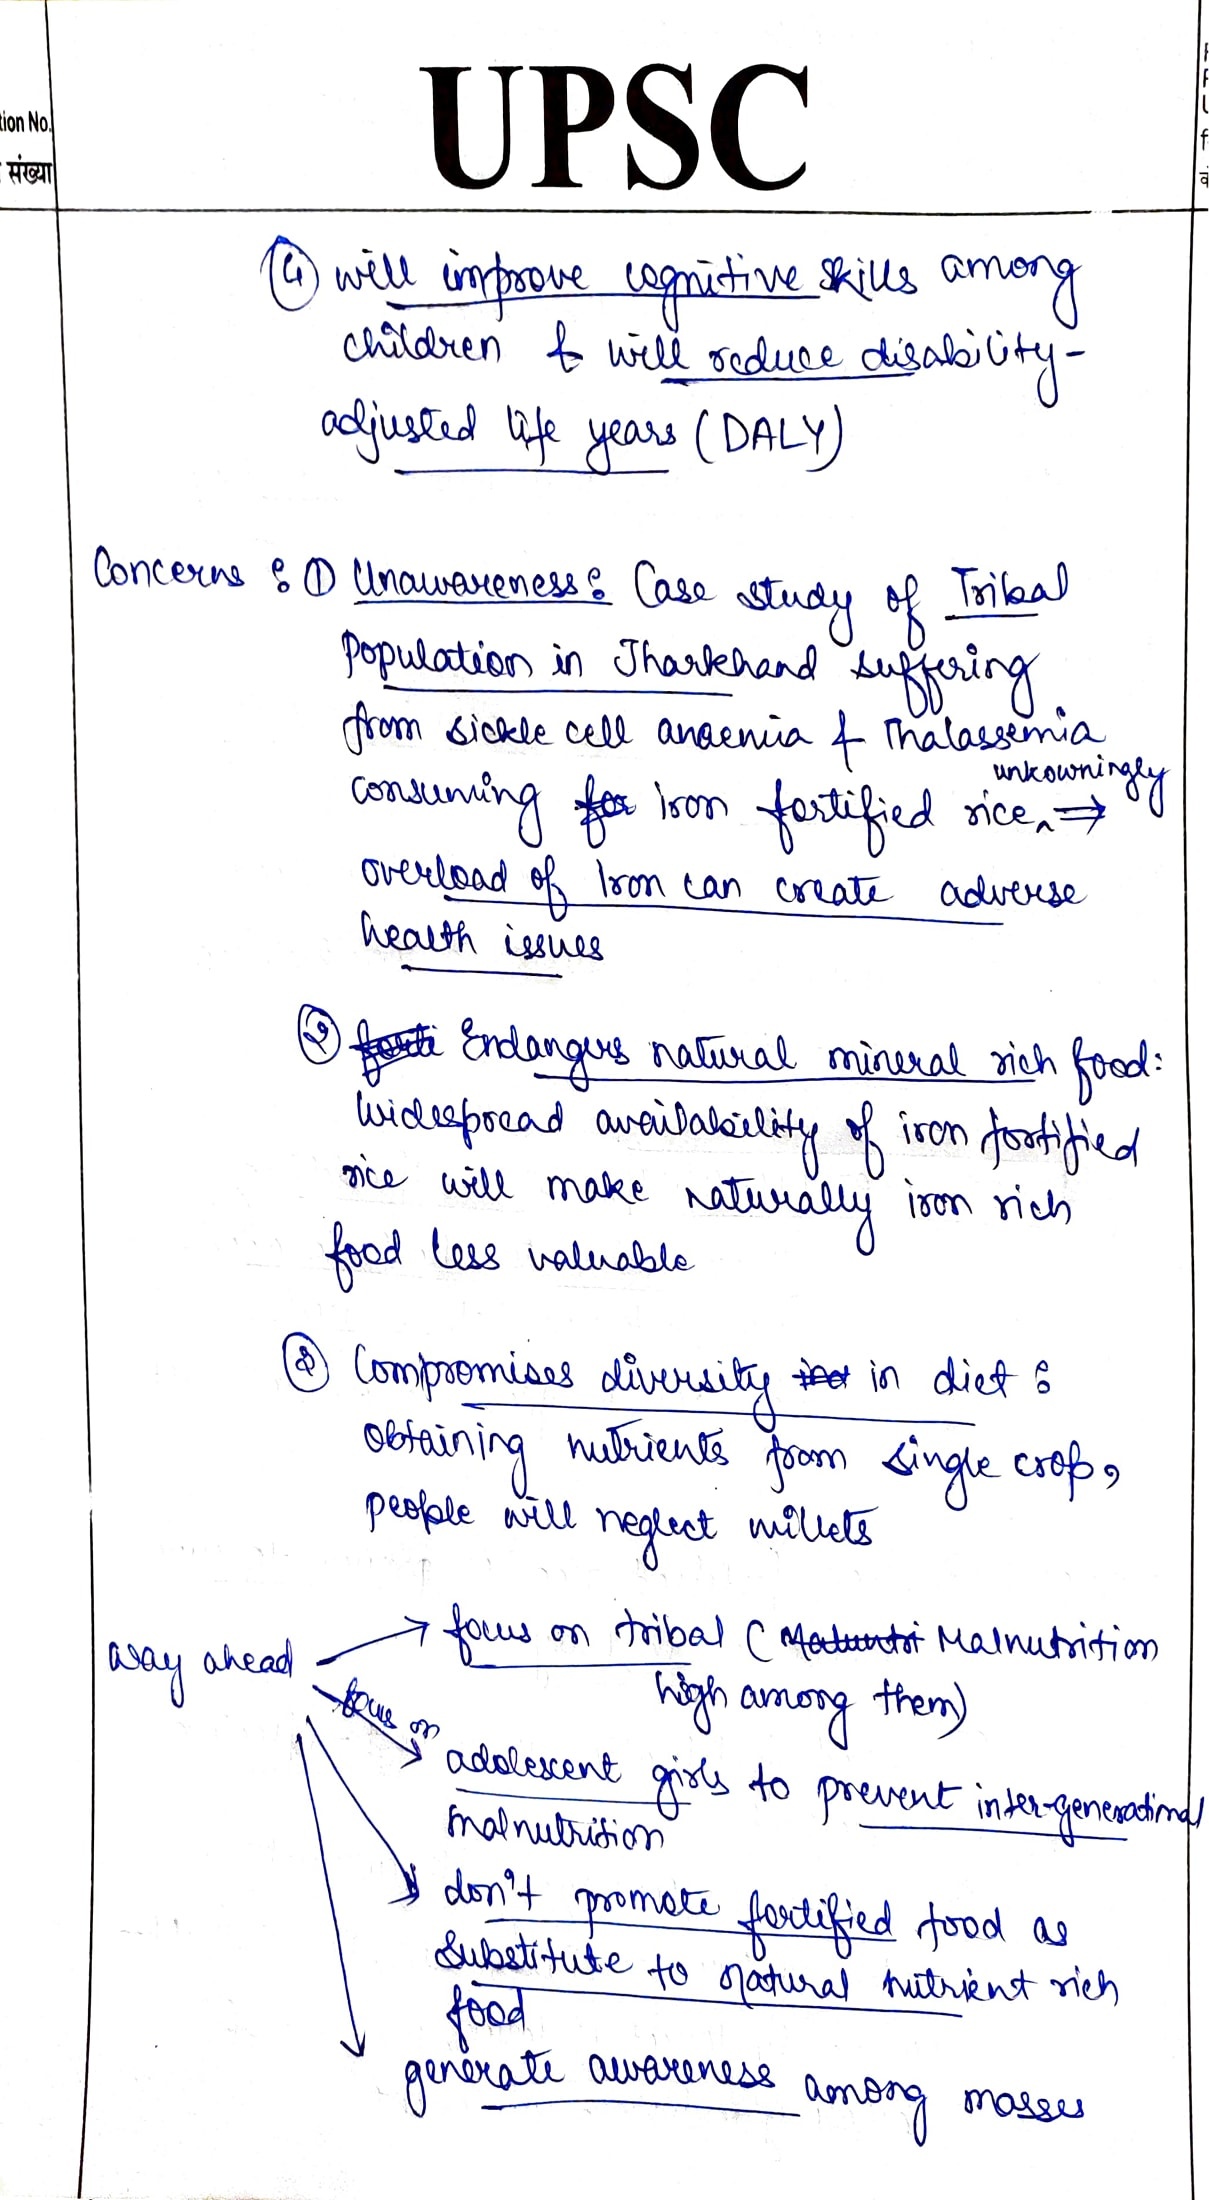 UPSC
tion No.
संख्या
④ will improve cognitive skills among
children & will reduce disability-
adjusted life years (DALY)
Concerns : ① Unawareness : Case study of Tribal
Population in Jharkhand suffering
from sickle cell anaemia & Thalassemia
unkowningly
consuming for iron fortified rice ^ ⇒
overload of Iron can create adverse
health issues
② forti Endangers natural mineral rich food:
Widespread availability of iron fortified
rice will make naturally iron rich
food less valuable
③ Compromises diversity in diet :
obtaining nutrients from single crop,
people will neglect millets
Way ahead → focus on tribal ( Malnutrition
high among them)
focus on
adolescent girls to prevent inter-generational
malnutrition
don't promote fortified food as
substitute to natural nutrient rich
food
generate awareness among masses